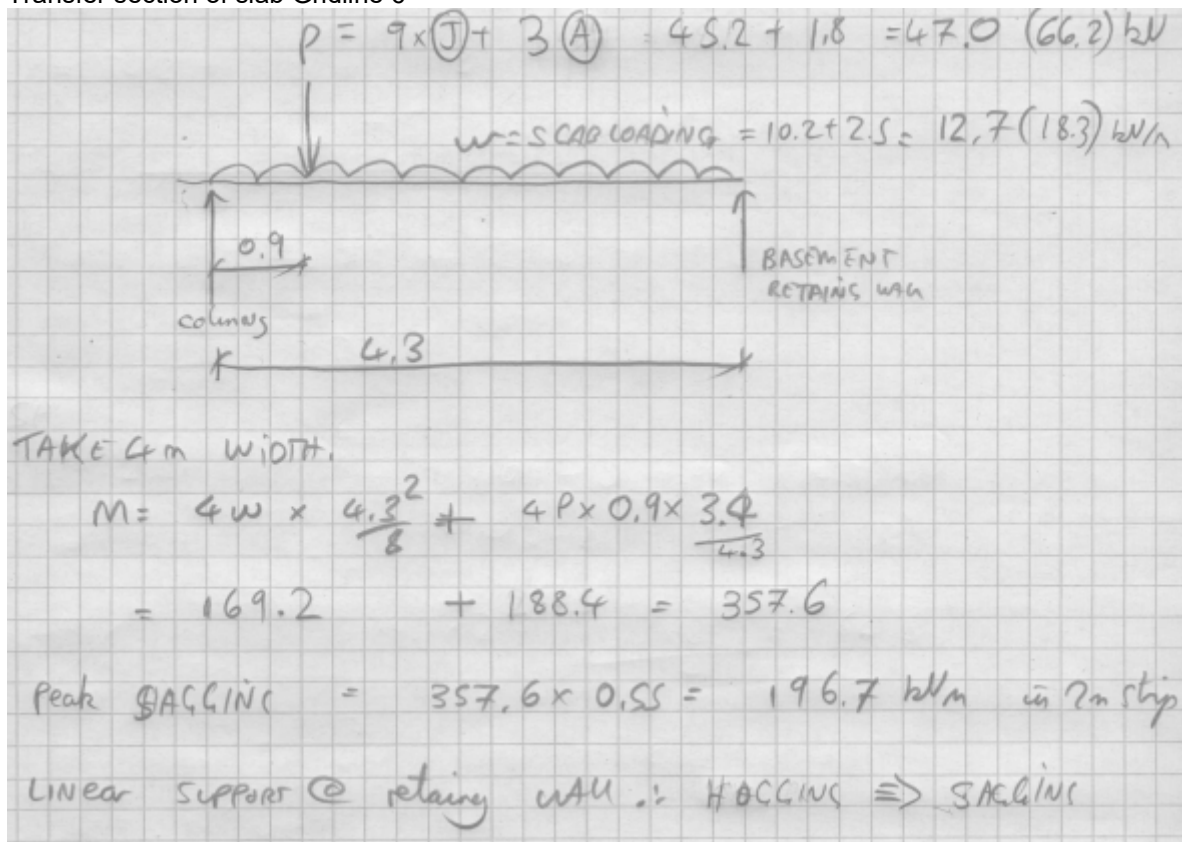 Transfer section of slab Gridline J
P = 9×Ⓙ + 3Ⓐ = 45.2 + 1.8 = 47.0 (66.2) kN
w = SLAB LOADING = 10.2 + 2.5 = 12.7 (18.3) kN/m
0.9
BASEMENT
RETAINING WALL
columns
4.3
TAKE 4m WIDTH.
M = 4w × 4.3²/8 + 4P × 0.9 × 3.4/4.3
= 169.2 + 188.4 = 357.6
Peak SAGGING = 357.6 × 0.55 = 196.7 kNm in 2m strip
LINEAR SUPPORT @ retaining WALL ∴ HOGGING ⇒ SAGGING